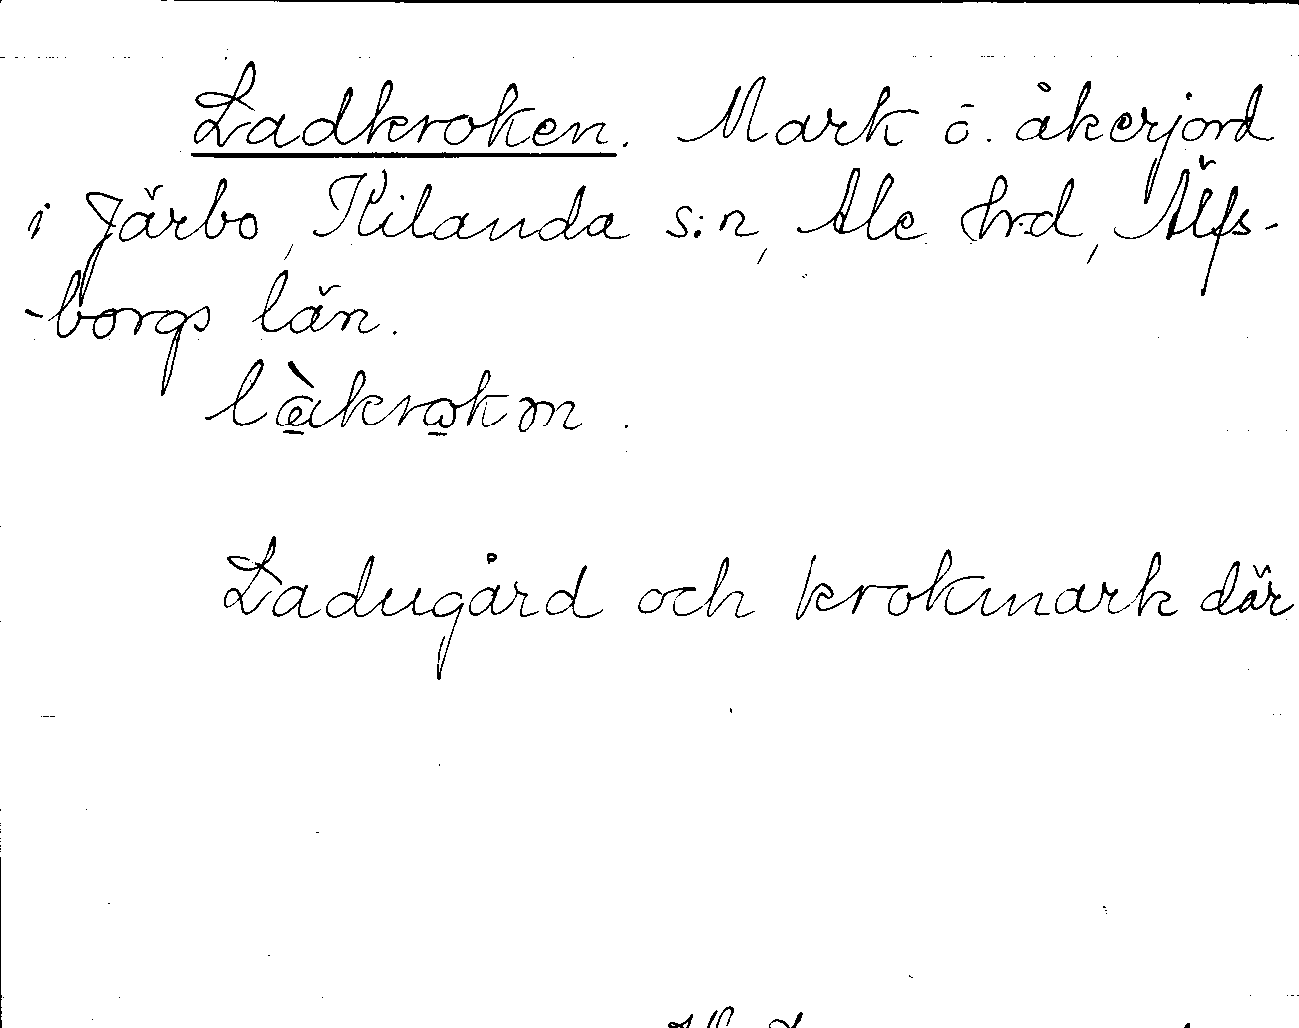 Ladkroken. Mark o. åkerjord
i Järbo, Kilanda s:n, Ale hrd, Älfs-
-borgs län.
Ladugård och krokmark där